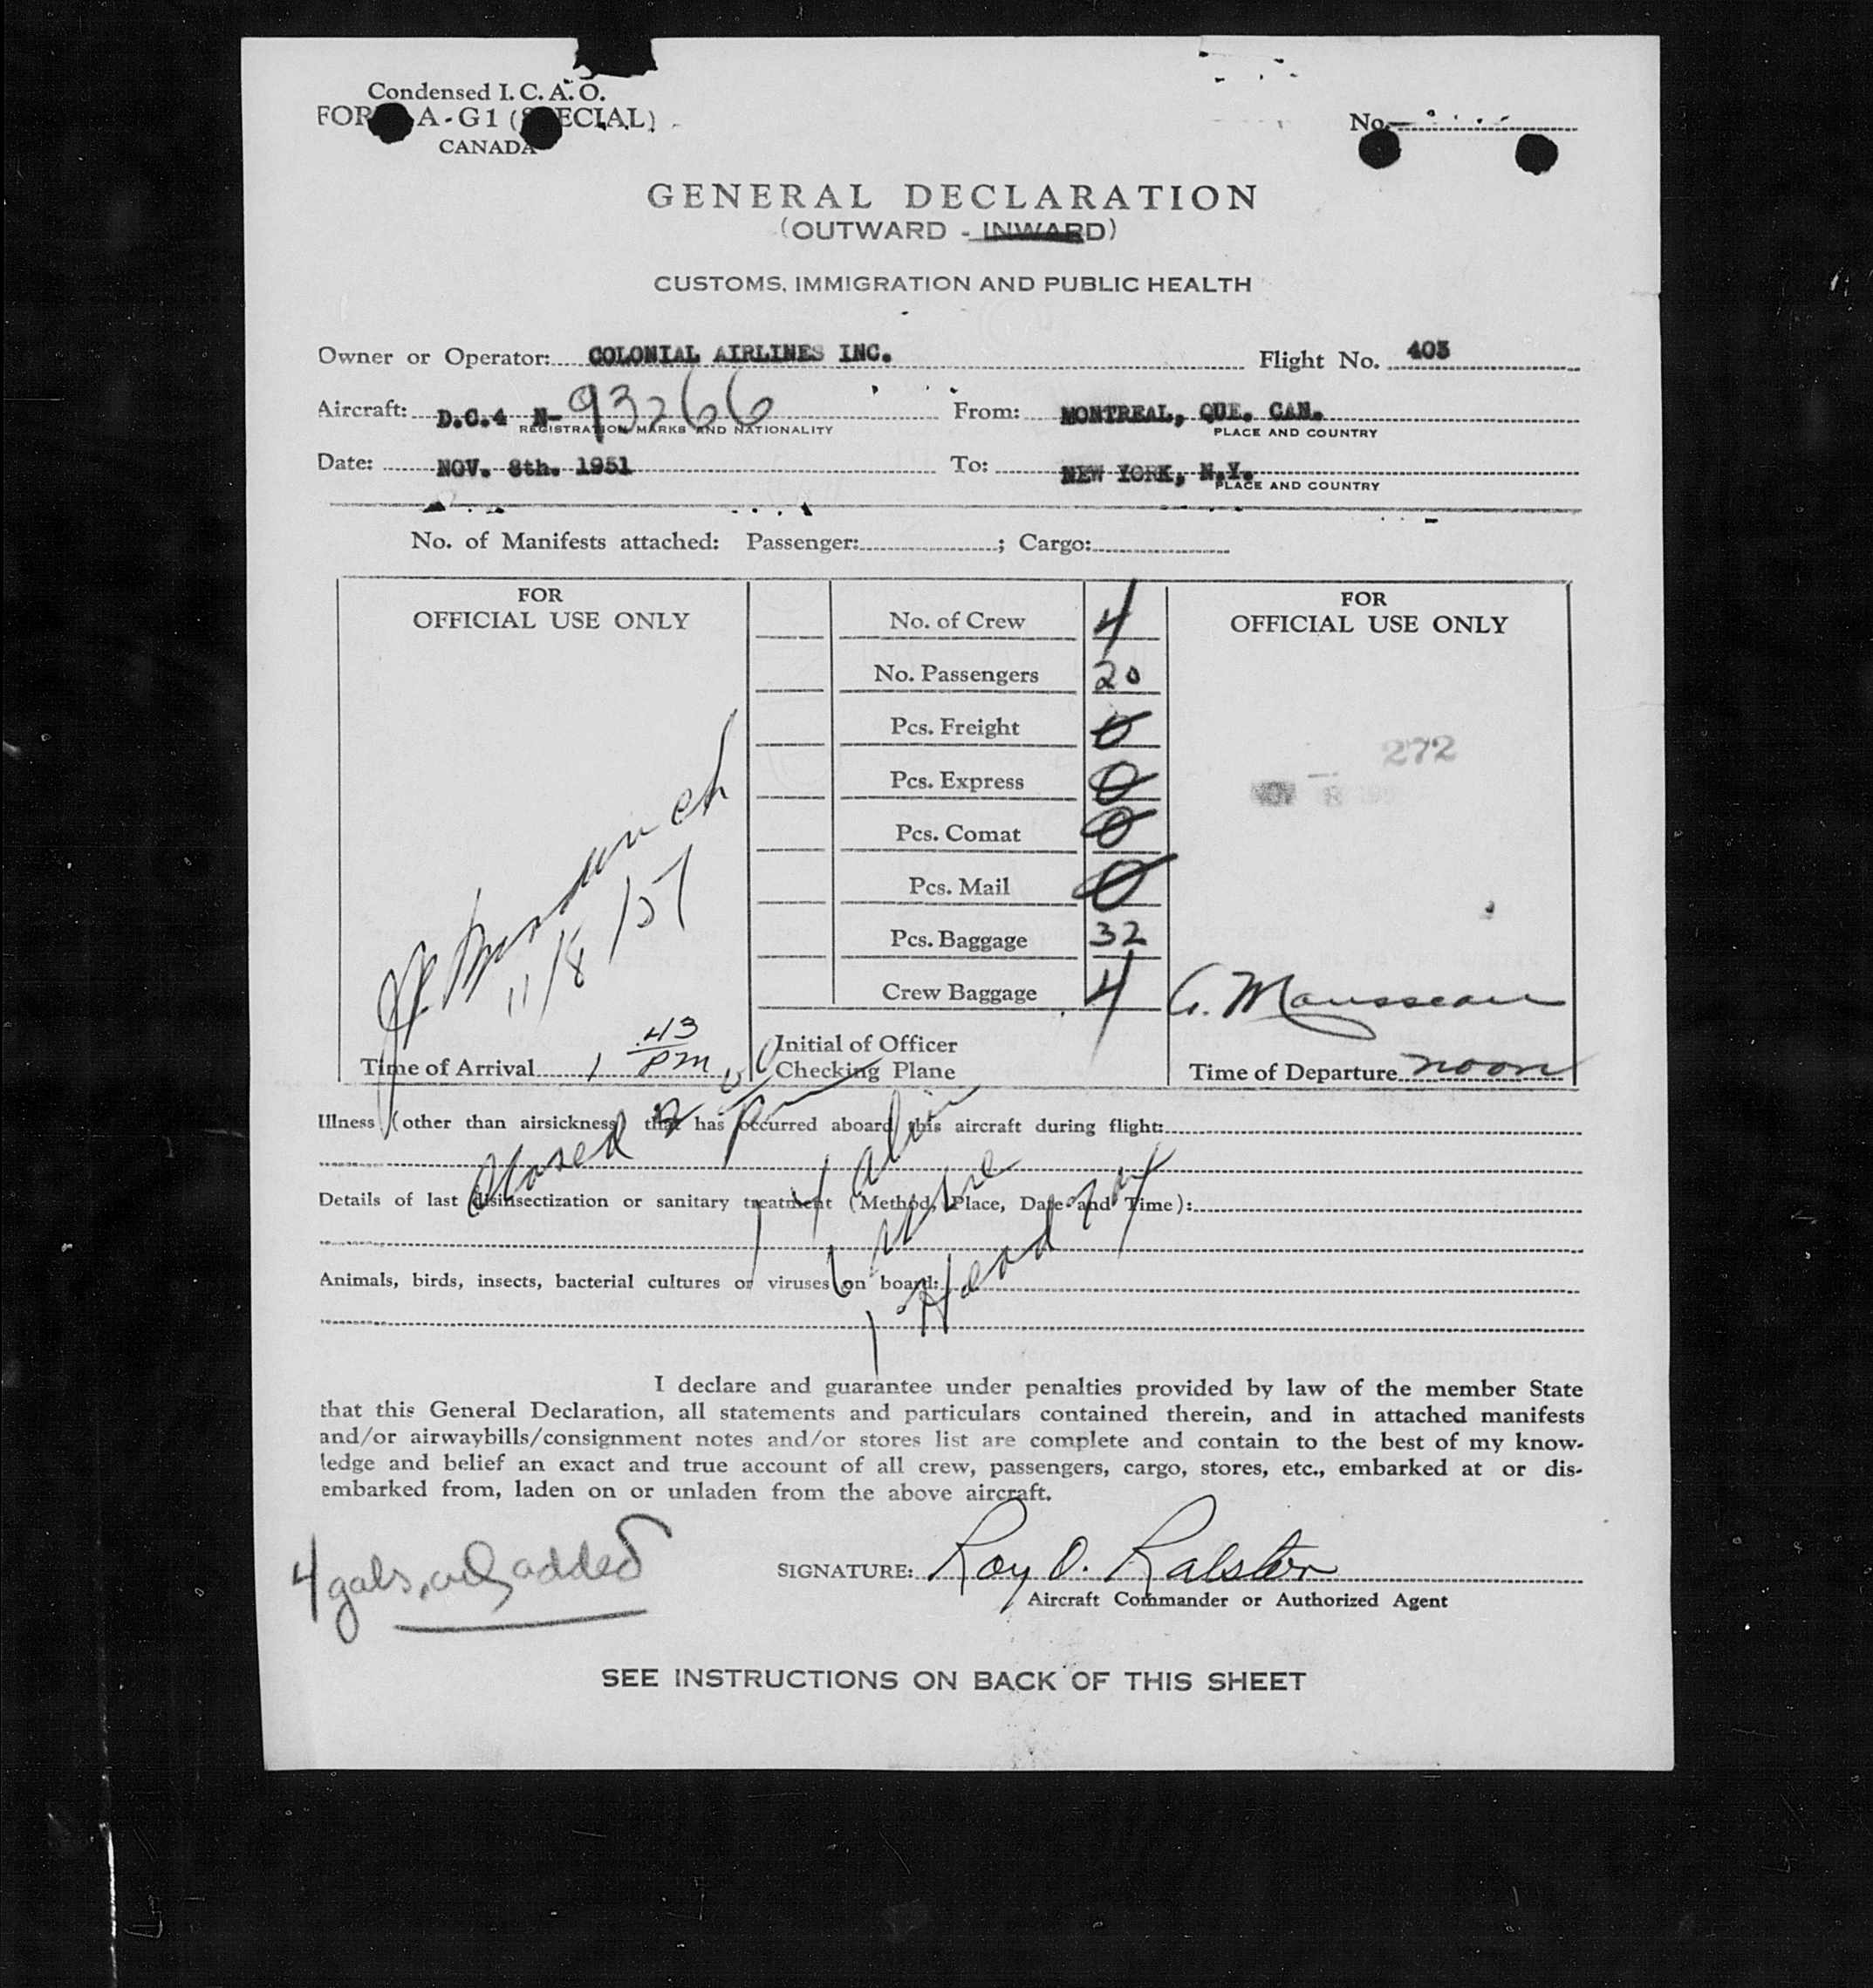 Condensed I. C. A. O.
FORM A-G1 (SPECIAL)
CANADA
No.
GENERAL DECLARATION
(OUTWARD - INWARD)
CUSTOMS, IMMIGRATION AND PUBLIC HEALTH
Owner or Operator: COLONIAL AIRLINES INC. Flight No. 403
Aircraft: D.C.4 N-93266 From: MONTREAL, QUE. CAN.
REGISTRATION MARKS AND NATIONALITY PLACE AND COUNTRY
Date: NOV. 8th. 1951 To: NEW YORK, N.Y.
PLACE AND COUNTRY
No. of Manifests attached: Passenger: ; Cargo:
FOR
OFFICIAL USE ONLY
11/8/51
Time of Arrival 1 .43 PM
No. of Crew 4
No. Passengers 20
Pcs. Freight 0
Pcs. Express 0
Pcs. Comat 0
Pcs. Mail 0
Pcs. Baggage 32
Crew Baggage 4
Initial of Officer
Checking Plane
FOR
OFFICIAL USE ONLY
272
NOV 8
Time of Departure noon
Illness (other than airsickness) that has occurred aboard this aircraft during flight:
Details of last disinsectization or sanitary treatment (Method, Place, Date and Time):
Animals, birds, insects, bacterial cultures or viruses on board:
I declare and guarantee under penalties provided by law of the member State
that this General Declaration, all statements and particulars contained therein, and in attached manifests
and/or airwaybills/consignment notes and/or stores list are complete and contain to the best of my know-
ledge and belief an exact and true account of all crew, passengers, cargo, stores, etc., embarked at or dis-
embarked from, laden on or unladen from the above aircraft.
4 gals. oil added
SIGNATURE: Roy D. Ralston
Aircraft Commander or Authorized Agent
SEE INSTRUCTIONS ON BACK OF THIS SHEET